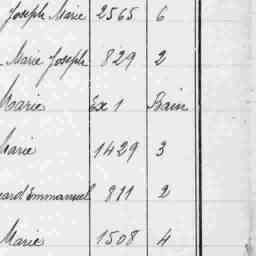 Joseph Marie 2565 6
Marie Joseph 829 2
Marie Ex 1 Bain
Marie 1429 3
eard Emmanuel 811 2
Marie 1508 4